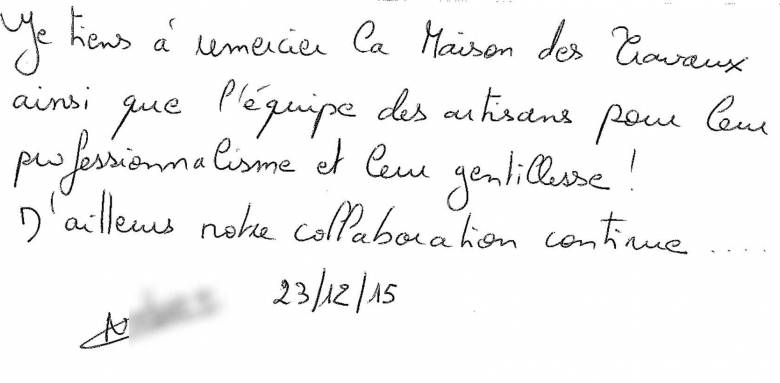 Je tiens à remercier la Maison des Travaux
ainsi que l'équipe des artisans pour leur
professionnalisme et leur gentillesse !
D'ailleurs notre collaboration continue .....
23/12/15